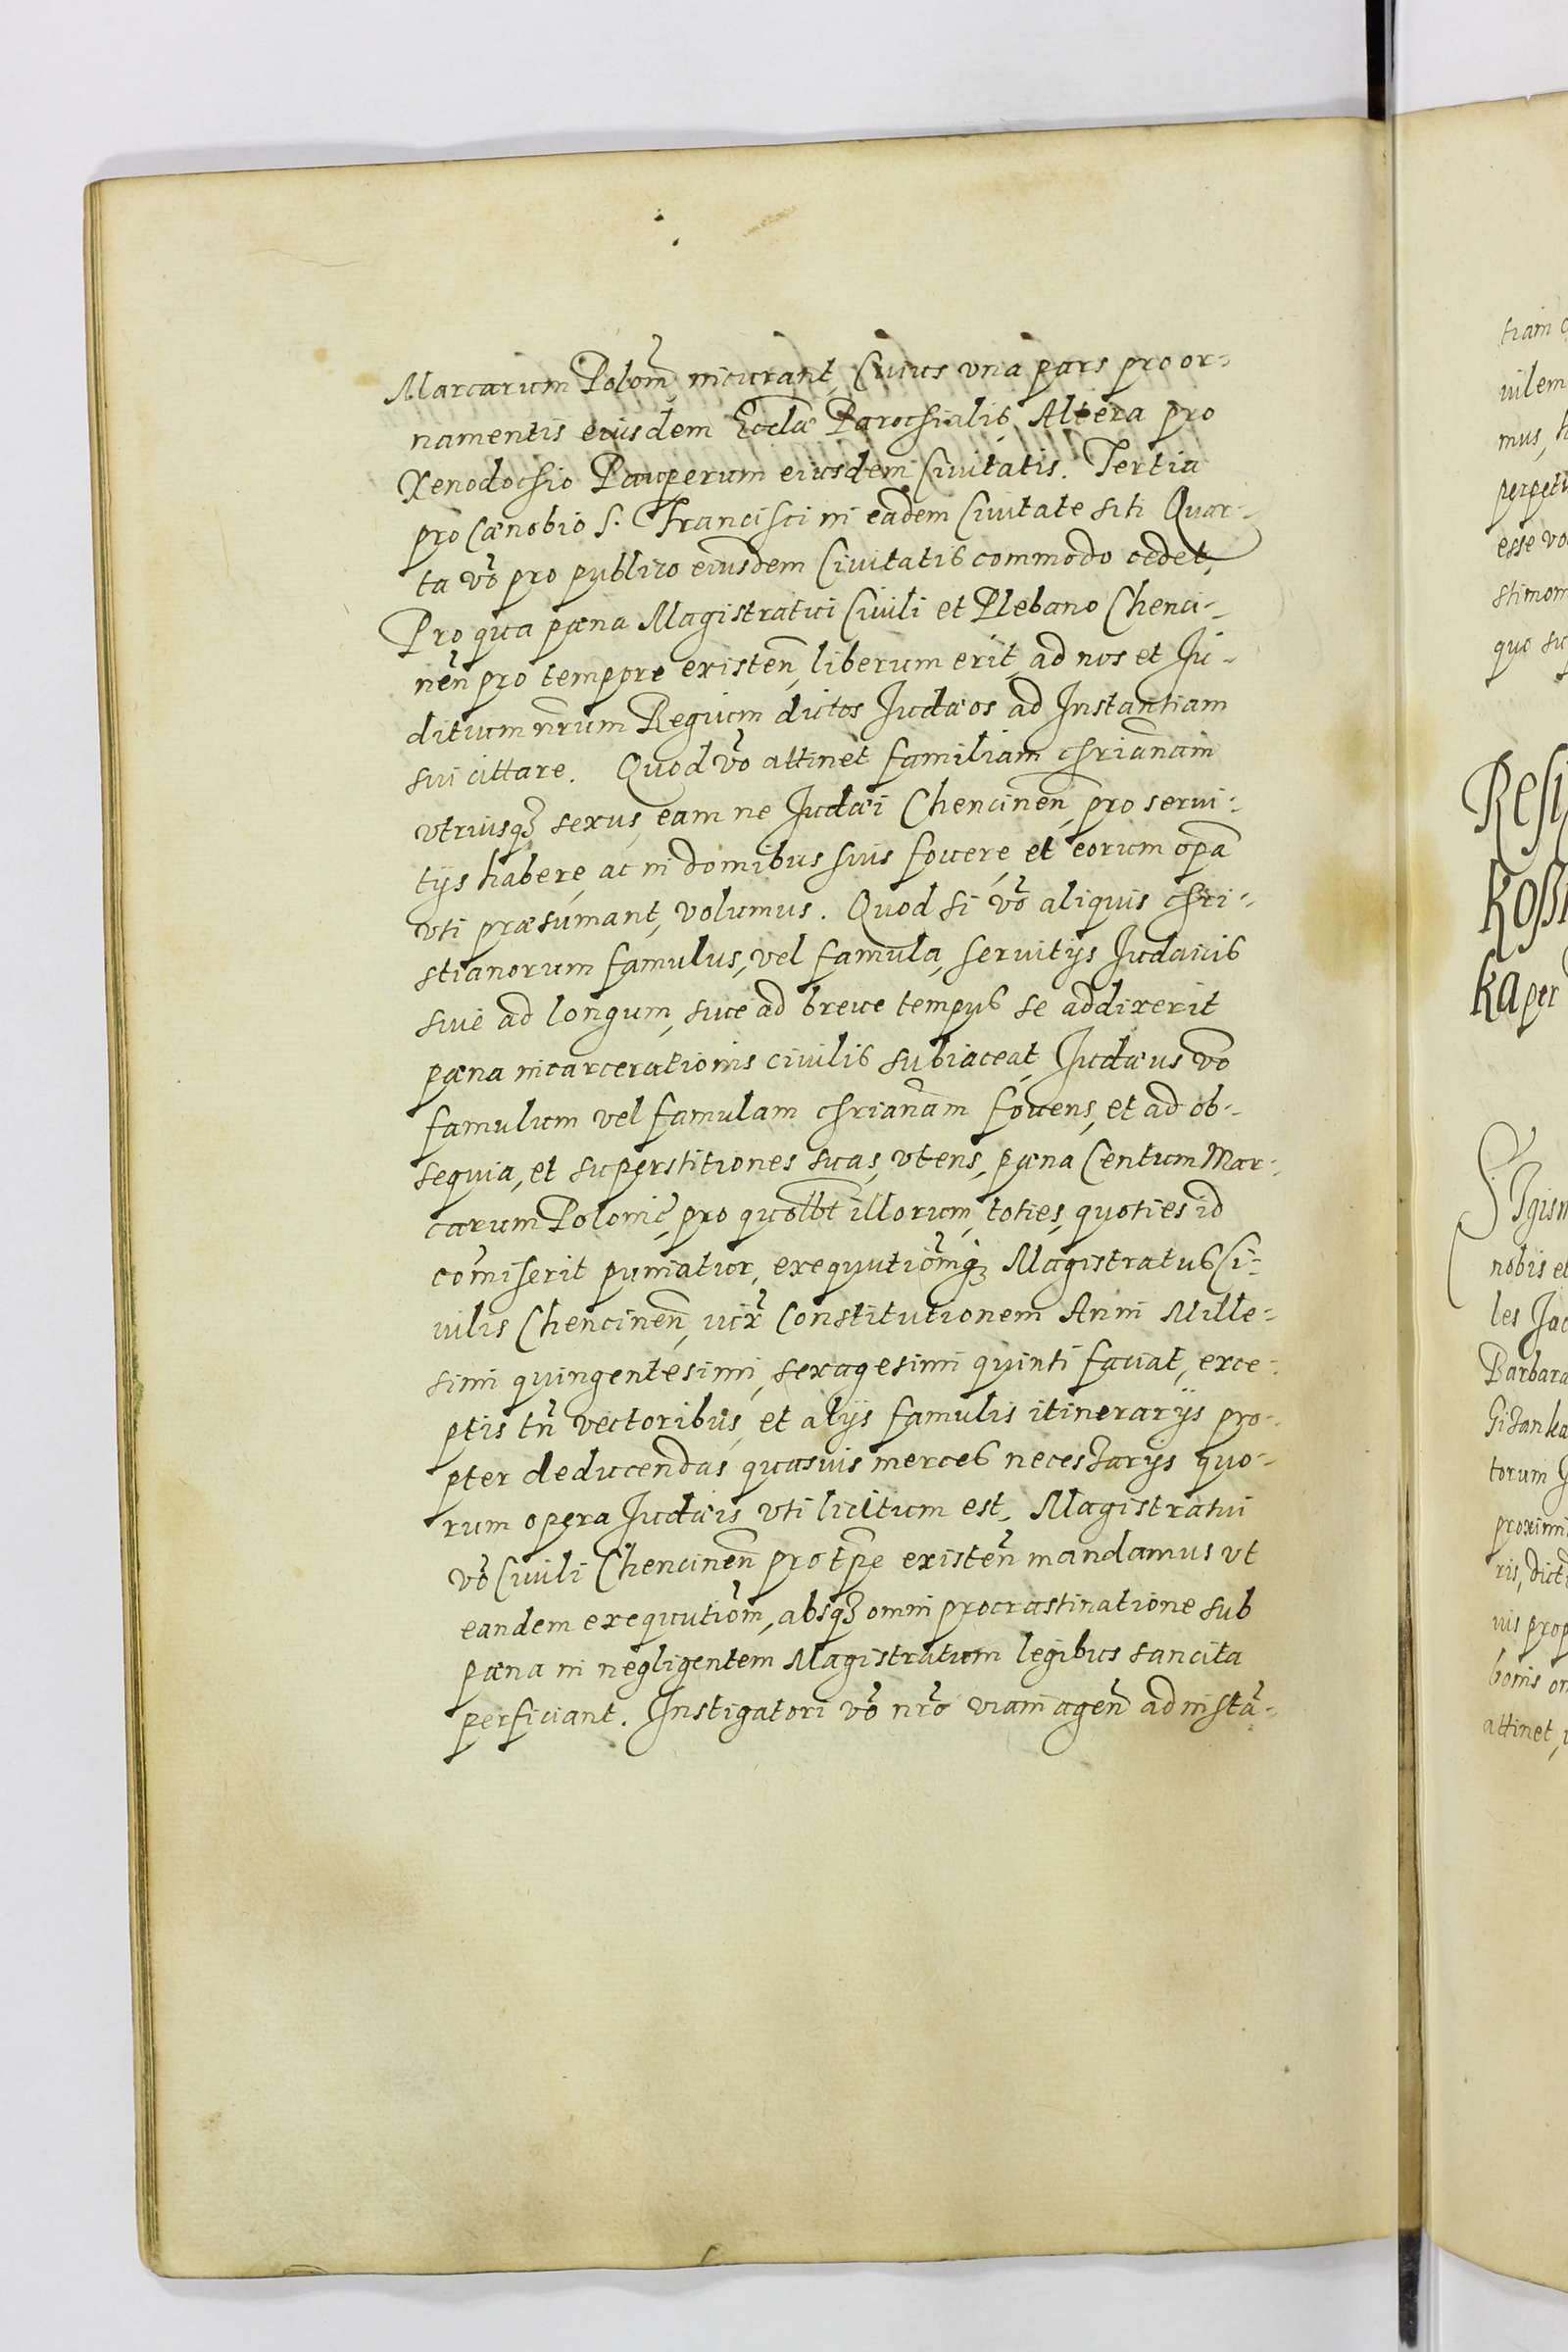 Marcarum Polon̄, incurrant, Cuius una pars pro or-
namentis eiusdem Ecclæ Parochialis, Altera pro
Xenodochio Pauperum eiusdem Civitatis. Tertia
pro Cænobio S. Francisci in eadem Civitate siti Quar-
ta vo pro publico eiusdem Civitatis commodo cedet,
Pro qua pæna Magistratui Civili et Plebano Chenci-
nen̄ pro tempore existen̄, liberum erit, ad nos et Ju-
ditium nrum Regium dictos Judæos ad Instantiam
sui cittare. Quod vo attinet familiam chrianam
vtriusq sexus, eam ne Judæi Chencinen̄, pro servi-
tijs habere, ac in domibus suis fovere, et eorum opa
vti præsumant, volumus. Quod si vo aliquis chri-
stianorum famulus, vel famula, servitijs Judaicis
sive ad longum, sive ad breve tempus se addixerit
pæna incarcerationis civilis subiaceat, Judæus vo
famulum vel famulam chrianam fovens, et ad ob-
sequia, et superstitiones suas, vtens, pæna Centum Mar-
carum Polonic̄, pro quolbt illorum, toties, quoties id
comiserit puniatur, exequutionq Magistratus Ci-
vilis Chencinen̄, iux Constitutionem Anni Mille-
simi quingentesimi, sexagesimi quinti faciat, exce-
ptis tn̄ vectoribus, et alijs famulis itinerarijs pro-
pter deducendas quasvis merces necessarijs quo-
rum opera Judæis vti licitum est, Magistratui
vo Civili Chencinen̄ pro tpe existen̄ mandamus vt
eandem exequutiom, absq omni procrastinatione sub
pæna in negligentem Magistratum legibus sancita
perficiant. Instigatori vo nro viam agen̄d ad insta-
tiam
vilem
mus,
perpetu
esse vo
stimon
quo su
Resi
Koß
ka per
Sigism
nobis et
les Jac
Barbara
Gizanka
torum J
proximi
ris, dict
vis prop
bonis om
attinet,